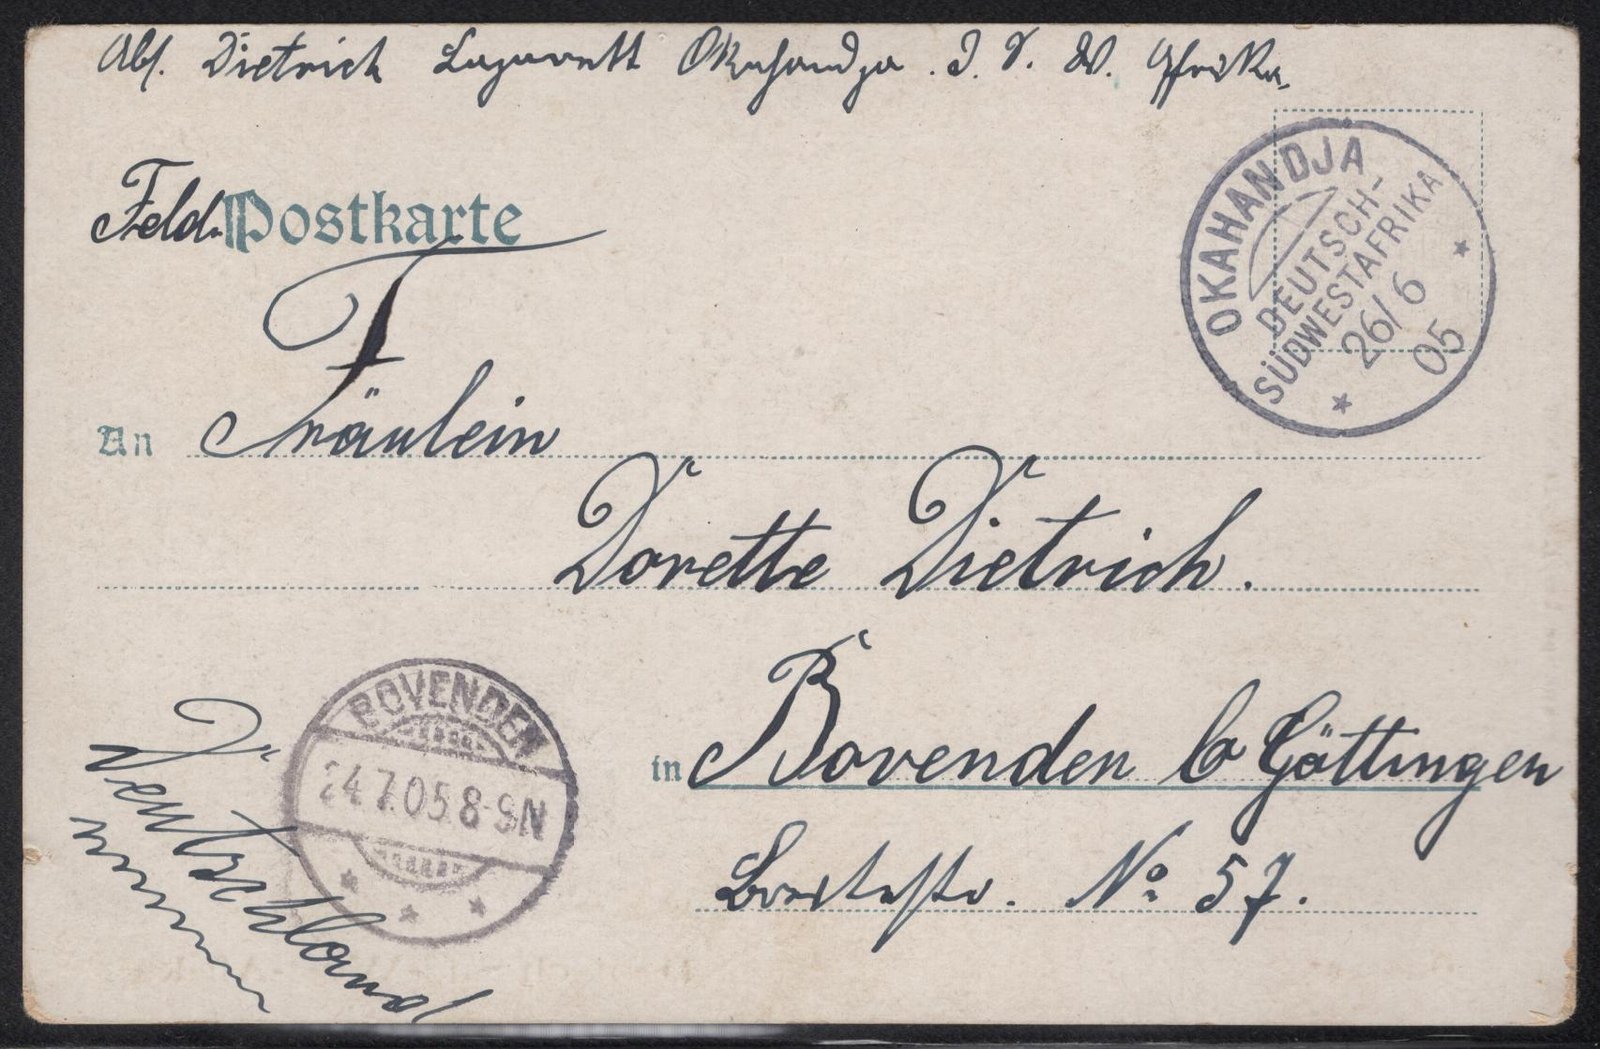 Abs. Dietrich Lazarett Okahandja. D. S. W. Afrika.
Feld-Postkarte
OKAHANDJA
DEUTSCH-
SÜDWESTAFRIKA
26/6
05
An Fräulein
Dorette Dietrich.
in Bovenden b Göttingen
No. 57.
BOVENDEN
24.7.05.8-9N
Deutschland